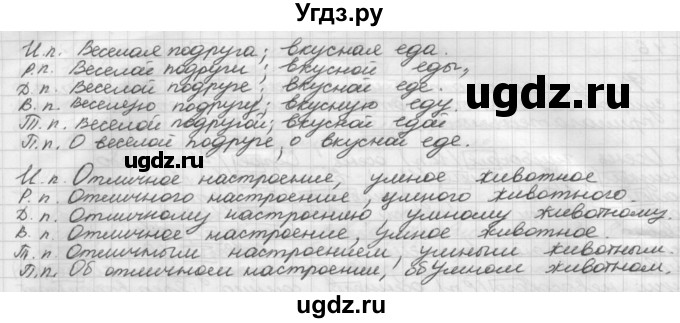 Угдз.ру
И.п. Веселая подруга; вкусная еда.
Р.п. Веселой подруги; вкусной еды,
Д.п. Веселой подруге; вкусной еде.
В.п. веселую подругу; вкусную еду.
Т.п. Веселой подругой; вкусной едой
П.п. О веселой подруге, о вкусной еде.
И.п. Отличное настроение, умное животное
Р.п. Отличного настроение, умного животного.
Д.п. Отличному настроению, умному животному.
В.п. Отличное настроение, умное животное.
Т.п. Отличным настроением, умным животным.
П.п. Об отличном настроении, об умном животном.
ugdz.ru
ugdz.ru
ugdz.ru
ugdz.ru
ugdz.ru